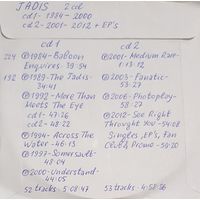 JADIS 2cd
cd1- 1984-2000
cd2- 2001-2012 + EP's
cd1
224 ℗1984-Baloon
Enquires-39:54
192 ℗1989-The Jadis-
34:41
℗1992-More Than
Meets The Eye
cd1-47:26
cd2-48:22
℗1994-Across The
Water-46:13
℗1997-Somersault-
48:04
℗2000-Understand-
44:05
52 tracks - 5:08:47
cd2
℗2001-Medium Rare-
1:13:12
℗2003-Fanatic-
53:27
℗2006-Photoplay-
58:27
℗2012-See Right
Throught You-54:08
Singles, EP's, Fan
Club & Promo-59:20
53 tracks-4:58:56